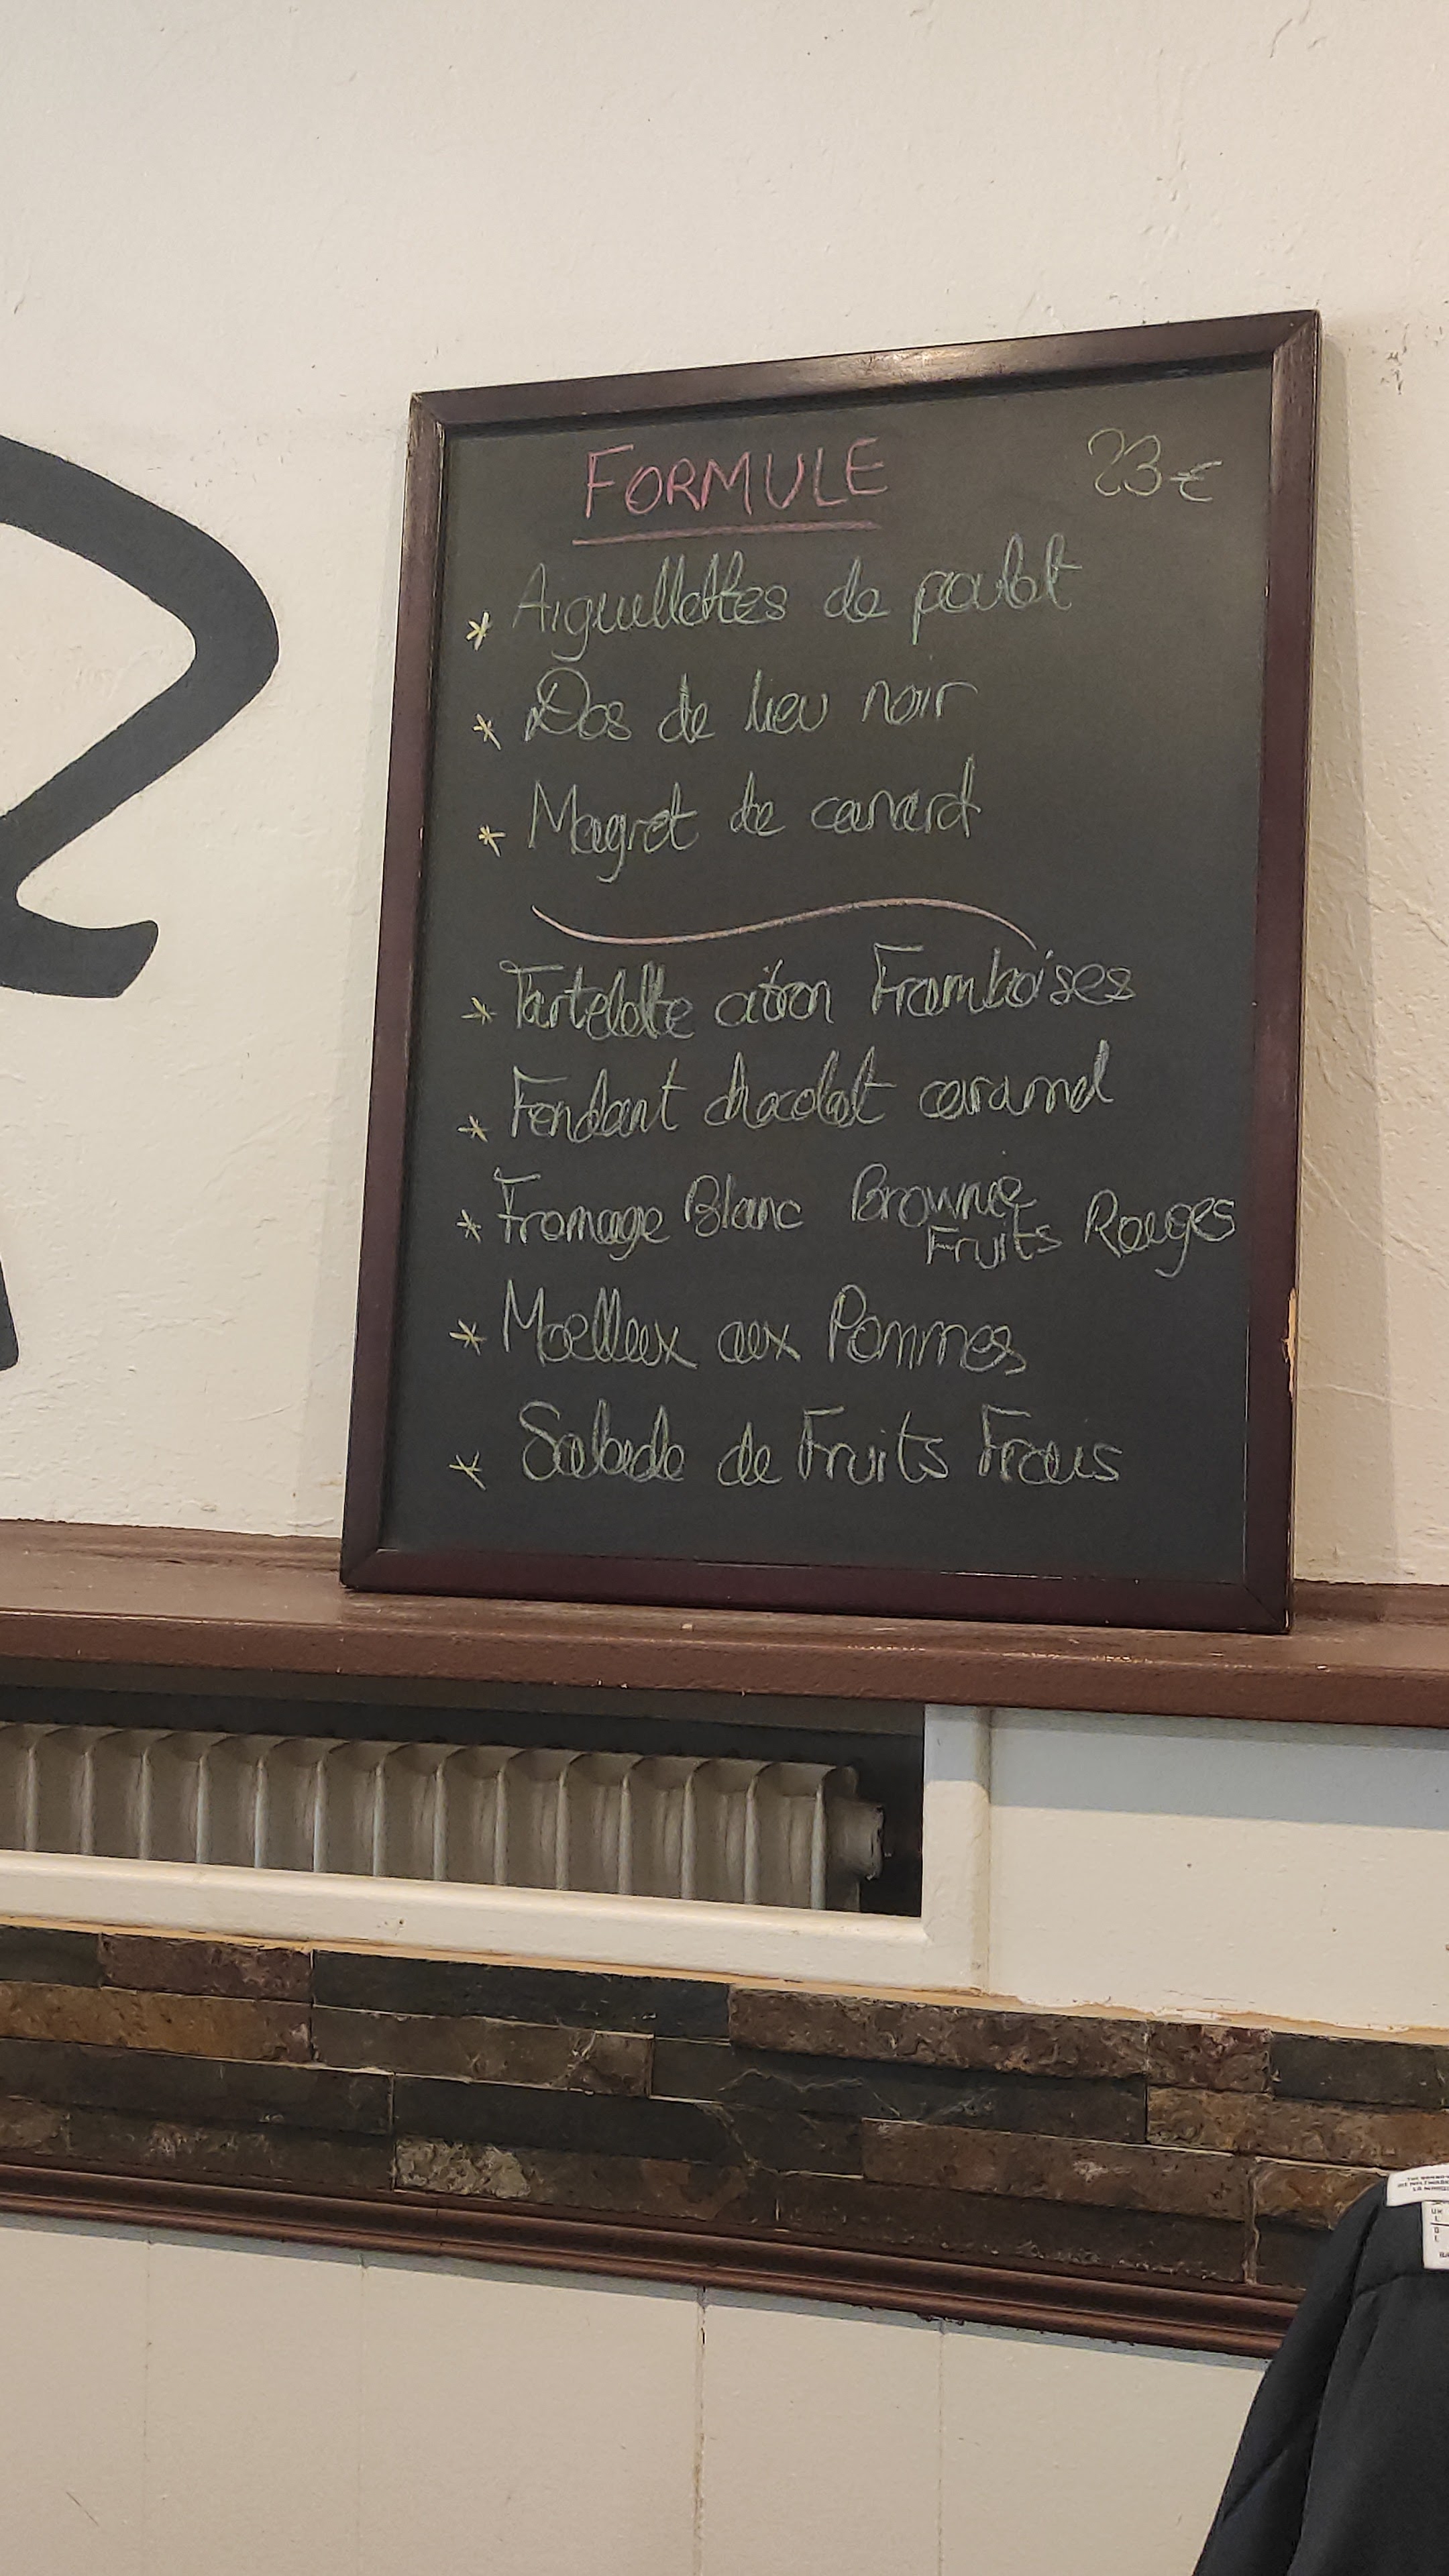 FORMULE 23€
* Aiguillettes de poulet
* Dos de lieu noir
* Magret de canard
* Tartelette citron Framboises
* Fondant chocolat caramel
* Fromage Blanc Brownie Fruits Rouges
* Moelleux aux Pommes
* Salade de Fruits Frais